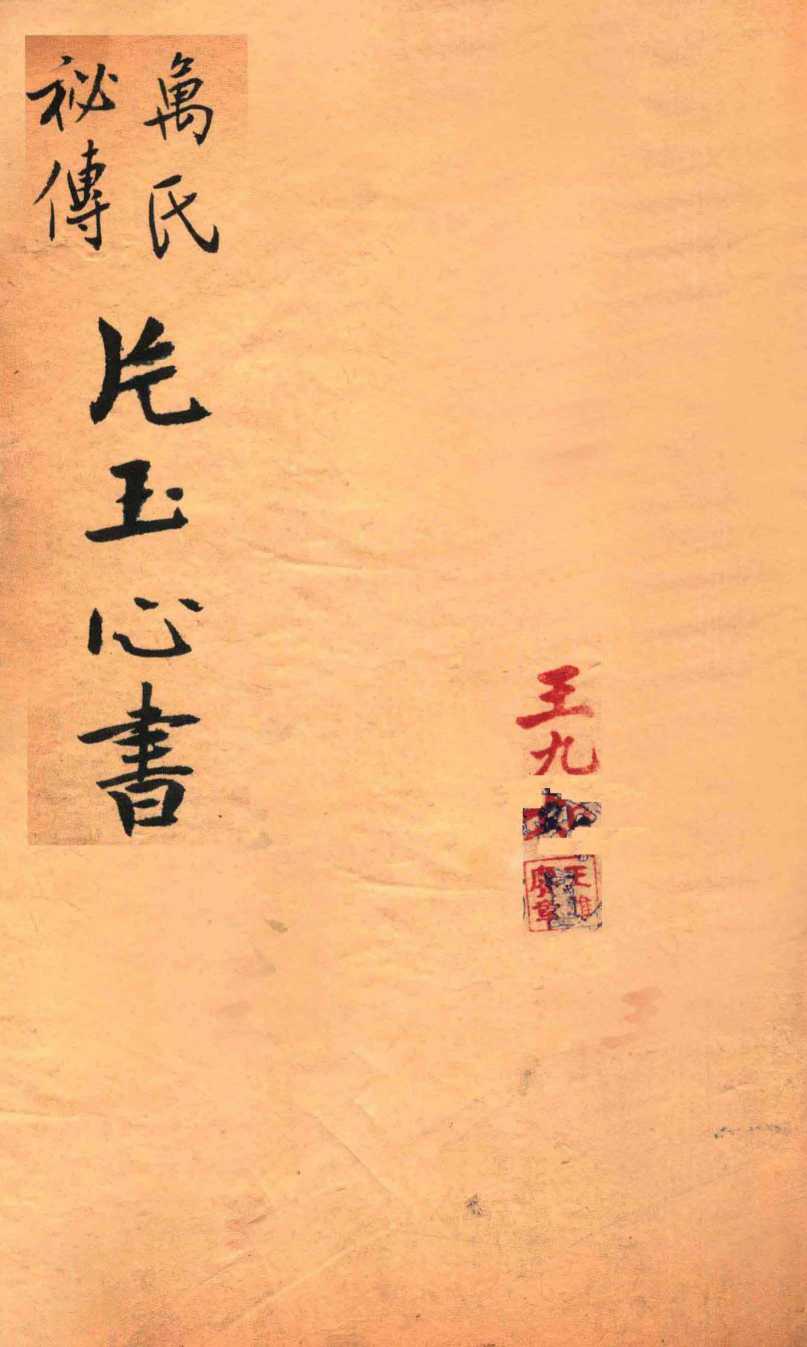 萬氏
祕傳
片玉心書
王九
王維
章